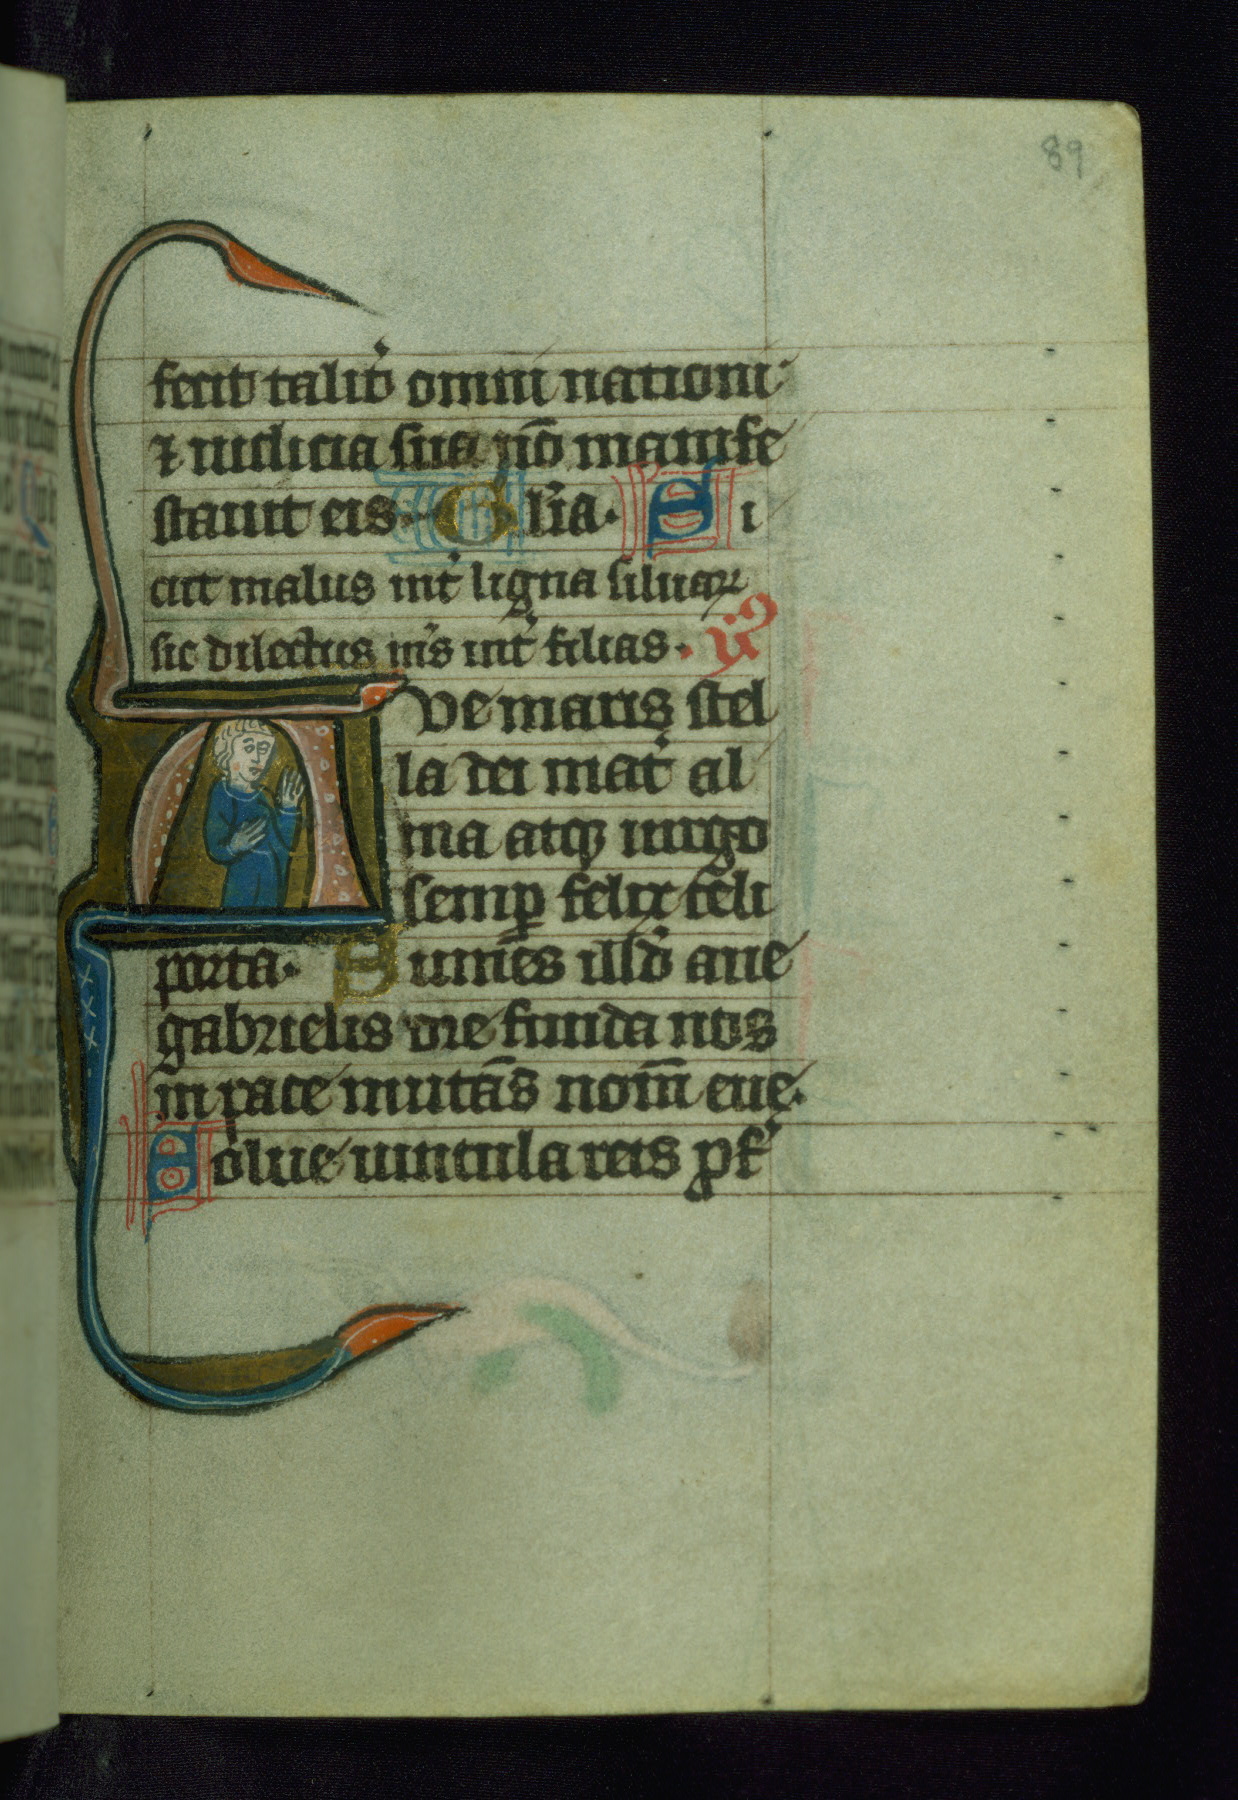 89
fecit talit̾ omni nationi
⁊ iudicia sua nō manife
stauit eis. Gl̾ia. Si
cut malus int̾ ligna siluaꝝ
sic dilectus m̾s int̾ filias. ẏ
Ave maris stel
la dei mat̾ al
ma atqꝫ uirgo
semꝑ felix celi
porta. Sumēs illđ aue
gabrielis ore funda nos
in pace mutās nom̄ eue.
Solue uincula reis ꝓf̾